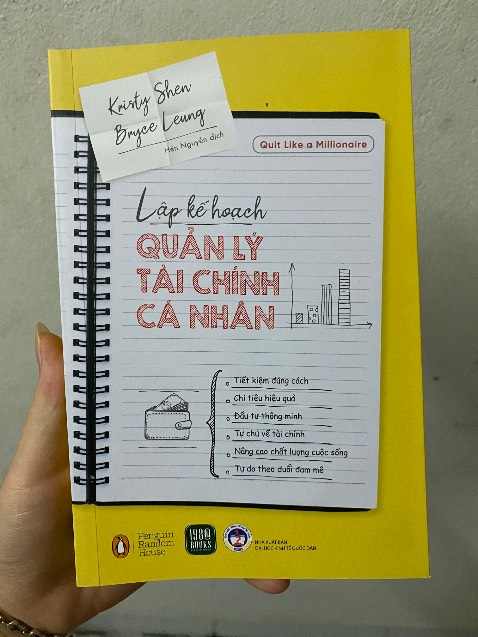 Kristy Shen
Bryce Leung
Hán Nguyên dịch
Quit Like a Millionaire
Lập kế hoạch
QUẢN LÝ
TÀI CHÍNH
CÁ NHÂN
Tiết kiệm đúng cách
Chi tiêu hiệu quả
Đầu tư thông minh
Tự chủ về tài chính
Nâng cao chất lượng cuộc sống
Tự do theo đuổi đam mê
Penguin
Random
House
1980
BOOKS
NHÀ XUẤT BẢN
ĐẠI HỌC KINH TẾ QUỐC DÂN